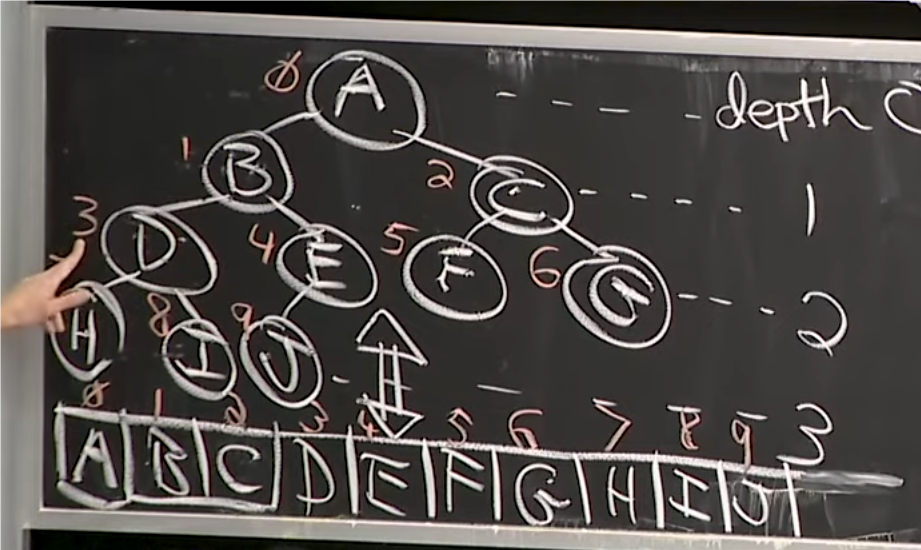 0 A depth 0
1 B 2 C 1
3 D 4 E 5 F 6 G 2
H 8 I 9 J 3
0 1 2 3 4 5 6 7 8 9
A B C D E F G H I J